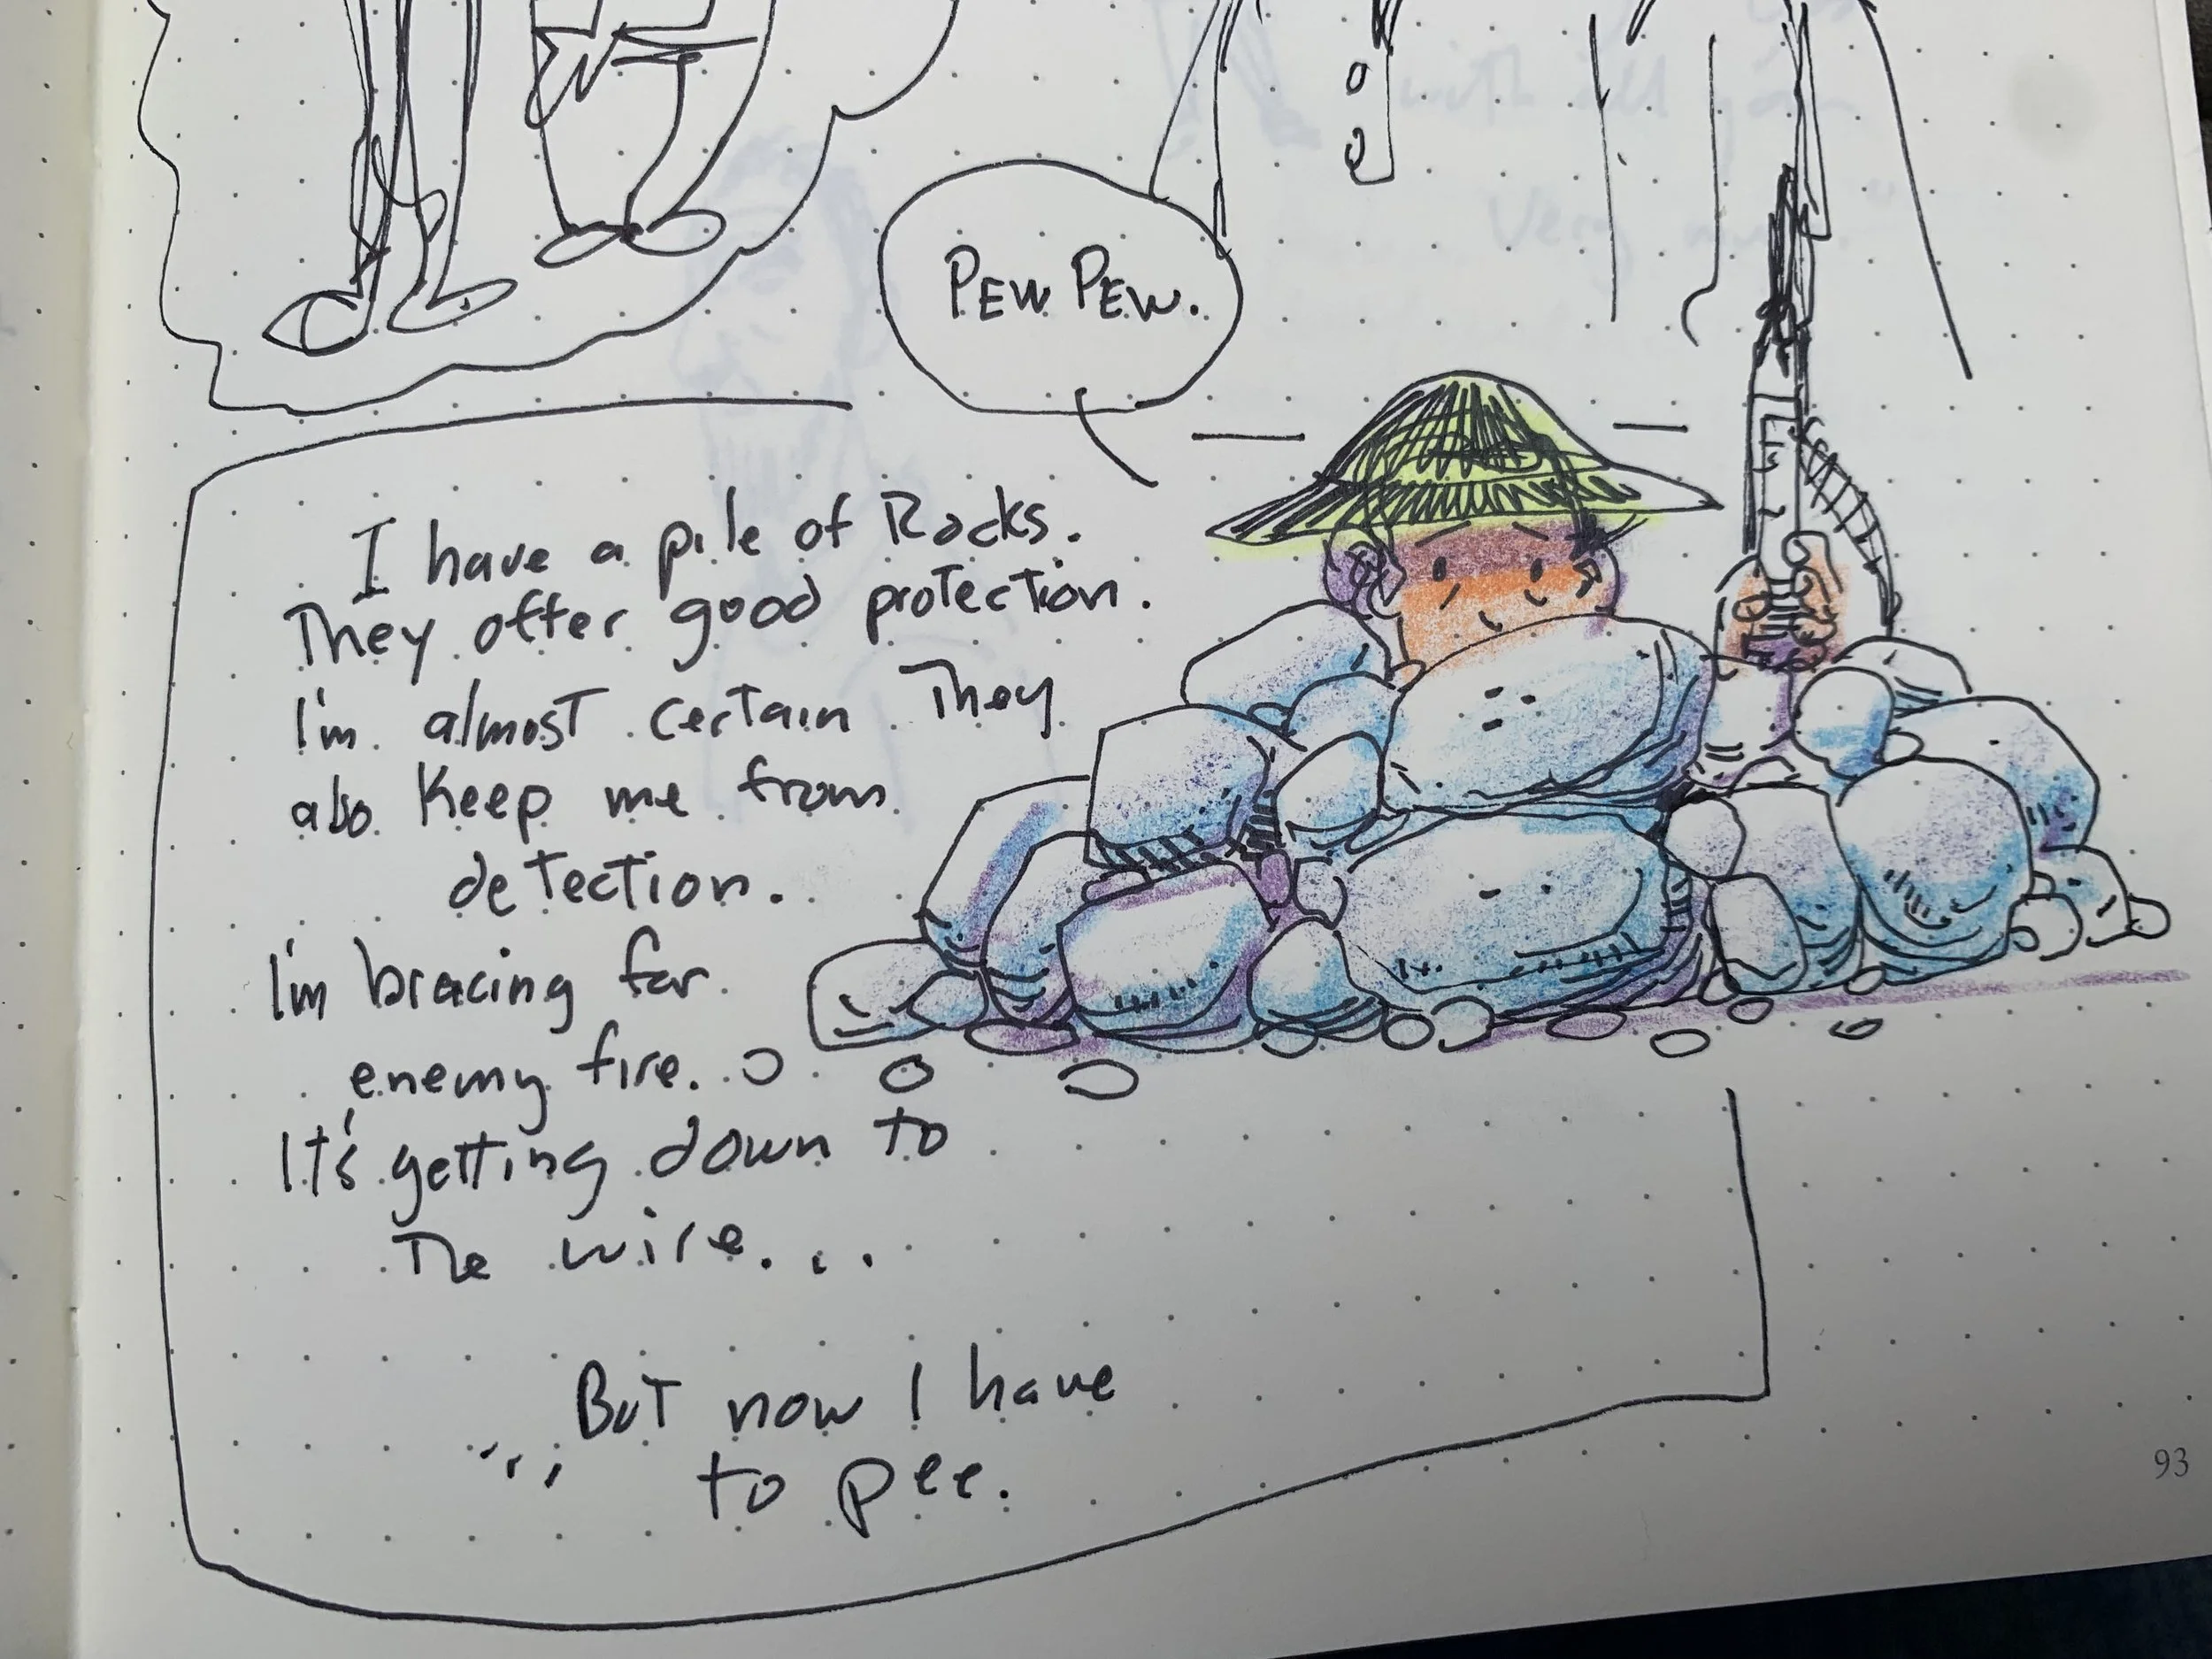 PEW PEW.
I have a pile of Rocks.
They offer good protection.
I'm almost certain They
also Keep me from
detection.
I'm bracing for
enemy fire.
It's getting down to
The wire...
...But now I have
to pee.
93